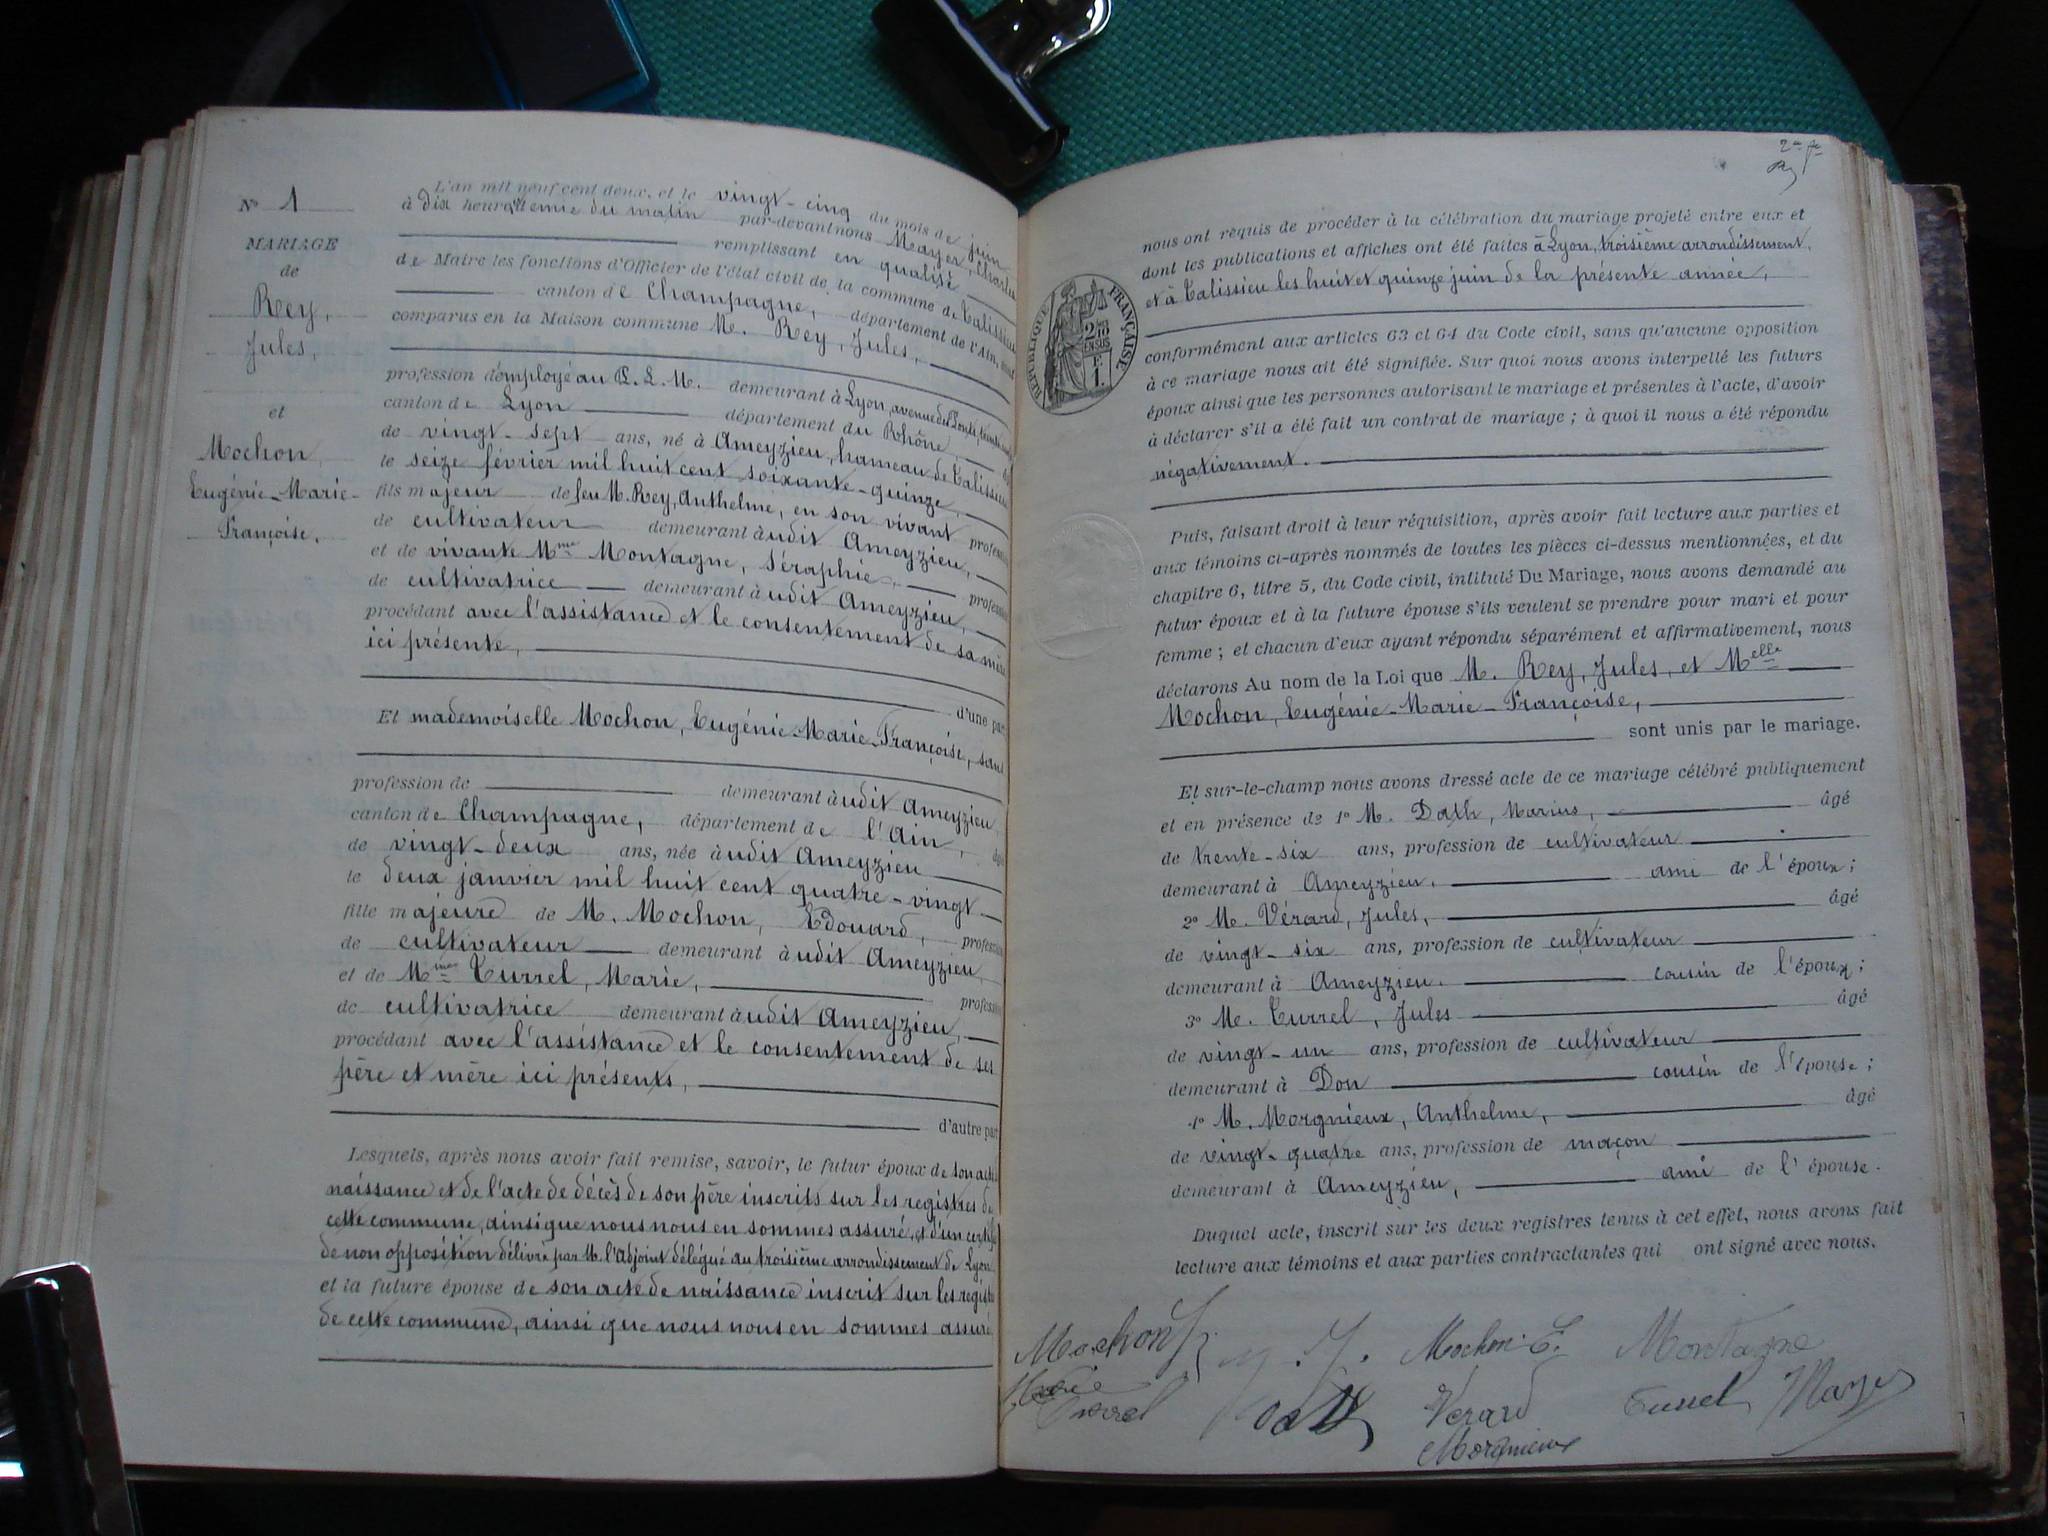 N° 1
MARIAGE
de
Rey,
Jules,
et
Mochon
Eugénie-Marie-
Françoise.
L'an mil neuf cent deux, et le vingt-cinq du mois de juin
à dix heures demie du matin par-devant nous Mayer, Charles
remplissant en qualité
de Maire les fonctions d'Officier de l'état civil de la commune de Talissieu
canton de Champagne, département de l'Ain,
comparus en la Maison commune M. Rey, Jules,
profession d'employé au P. L. M. demeurant à Lyon, avenue du
canton de Lyon département du Rhône,
de vingt-sept ans, né à Ameyzieu, hameau de Talissieu
le seize février mil huit cent soixante-quinze,
fils majeur de feu M. Rey, Anthelme, en son vivant profession
de cultivateur demeurant à udit Ameyzieu,
et de vivante Mme Montagne, Séraphie, profession
de cultivatrice demeurant à udit Ameyzieu,
procédant avec l'assistance et le consentement de sa mère
ici présente,
d'une part
Et mademoiselle Mochon, Eugénie-Marie-Françoise, sans
profession de demeurant à udit Ameyzieu
canton de Champagne, département de l'Ain,
de vingt-deux ans, née à udit Ameyzieu
le deux janvier mil huit cent quatre-vingt
fille majeure de M. Mochon, Edouard, profession
de cultivateur demeurant à udit Ameyzieu,
et de Mme Turrel, Marie, profession
de cultivatrice demeurant à udit Ameyzieu,
procédant avec l'assistance et le consentement de ses
père et mère ici présents,
d'autre part
Lesquels, après nous avoir fait remise, savoir, le futur époux de son acte
naissance et de l'acte de décès de son père inscrits sur les registres de
cette commune, ainsi que nous nous en sommes assuré, et d'un certificat
de non opposition délivré par M. l'Adjoint délégué au troisième arrondissement de Lyon
et la future épouse de son acte de naissance inscrit sur les registres
de cette commune, ainsi que nous nous en sommes assuré
nous ont requis de procéder à la célébration du mariage projeté entre eux et
dont les publications et affiches ont été faites à Lyon, troisième arrondissement,
et à Talissieu les huit et quinze juin de la présente année,
RÉPUBLIQUE FRANÇAISE
conformément aux articles 63 et 64 du Code civil, sans qu'aucune opposition
à ce mariage nous ait été signifiée. Sur quoi nous avons interpellé les futurs
époux ainsi que les personnes autorisant le mariage et présentes à l'acte, d'avoir
à déclarer s'il a été fait un contrat de mariage ; à quoi il nous a été répondu
négativement.
Puis, faisant droit à leur réquisition, après avoir fait lecture aux parties et
aux témoins ci-après nommés de toutes les pièces ci-dessus mentionnées, et du
chapitre 6, titre 5, du Code civil, intitulé Du Mariage, nous avons demandé au
futur époux et à la future épouse s'ils veulent se prendre pour mari et pour
femme ; et chacun d'eux ayant répondu séparément et affirmativement, nous
déclarons Au nom de la Loi que M. Rey, Jules, et Melle
Mochon, Eugénie-Marie-Françoise,
sont unis par le mariage.
Et sur-le-champ nous avons dressé acte de ce mariage célébré publiquement
et en présence de 1° M. Dath, Marius, âgé
de trente-six ans, profession de cultivateur
demeurant à Ameyzieu. ami de l'époux ;
2° M. Vérard, Jules, âgé
de vingt-six ans, profession de cultivateur
demeurant à Ameyzieu. cousin de l'époux ;
3° M. Turrel, Jules âgé
de vingt-un ans, profession de cultivateur
demeurant à Don cousin de l'épouse ;
4° M. Morgnieux, Anthelme, âgé
de vingt-quatre ans, profession de maçon
demeurant à Ameyzieu, ami de l'épouse.
Duquel acte, inscrit sur les deux registres tenus à cet effet, nous avons fait
lecture aux témoins et aux parties contractantes qui ont signé avec nous.
Mochon Mochon E. Montagne
Marie
Turrel Dath Verard Turrel Mayer
Morgnieux